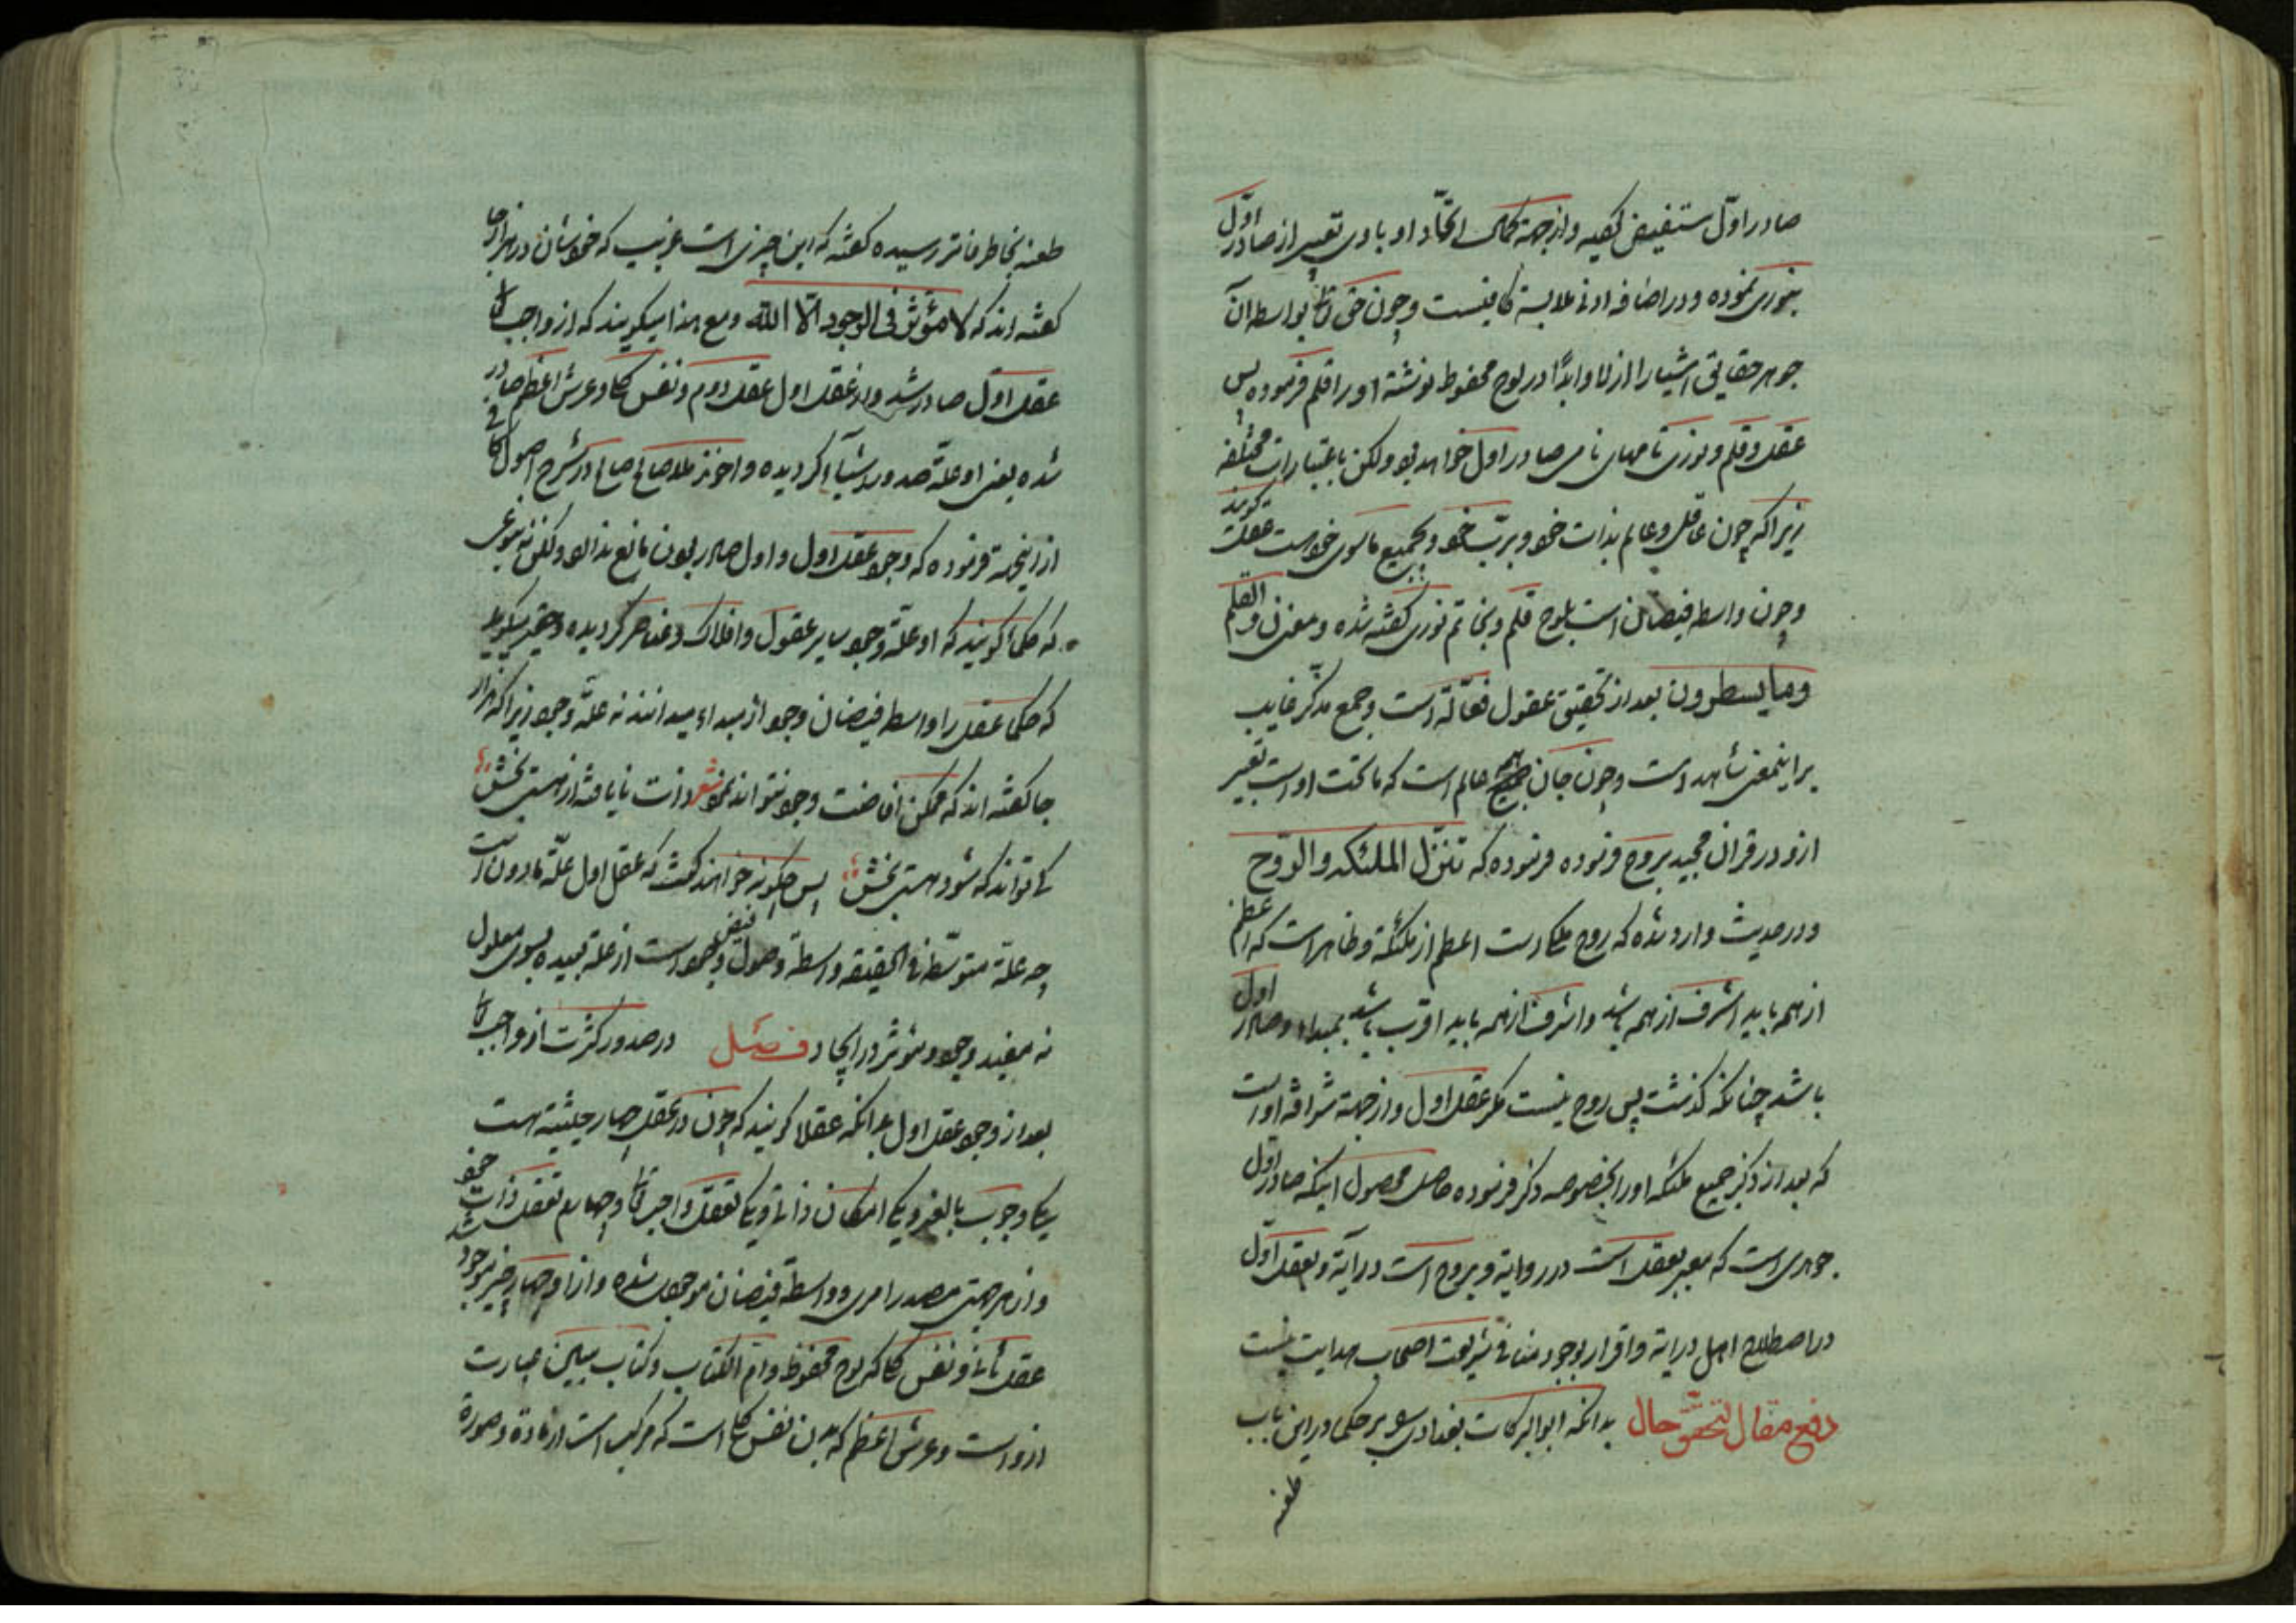 صادر اول مستفیض گفیه و از جهة کمال اتحاد او با وی تعبیر از صادر اول
بنوری نموده و در اضافه ادنی ملابسة کافیست و چون حق تع بواسطه آن
جوهر حقایق اشیا را ازلا و ابدًا در لوح محفوظ نوشته او را قلم فرموده پس
عقل و قلم و نوری نامهای صادر اول خواهد بود ولکن باعتبارات مختلفه
زیرا که چون عاقل و عالم بذات خود و بربّ خود و بجمیع ماسوی خودست عقلش گویند
و چون واسطه فیضان است بلوح قلم و بخاتم نوری گفته شده و معنی ن والقلم
وما یسطرون بعد از تحقیق عقول فعّاله است و جمع مذکّر غایب
بر اینمعنی شاهد است و چون جان جمیع عالم است که ماتحت اوست تعبیر
ازو در قران مجید بروح فرموده فرموده که تنزّل الملئکه والرّوح
و در حدیث وارد شده که روح ملکی است اعظم از ملئکة و ظاهر است که اعظم
از همه باید اشرف از همه باشد و اشرف از همه باید اقرب باشد بمبداء و صادر اول
باشد چنانکه گذشت پس روح نیست مگر عقل اول و از جهة شرافة اوست
که بعد از ذکر جمیع ملئکه او را بخصوصه ذکر فرموده حاصل محصول اینکه صادر اول
جوهری است که معبر بعقل است در روایة و بروح است در آیة و بعقل اوّل
در اصطلاح اهل درایة و اقرار بوجود منافی شریعت اصحاب هدایت نیست
دفع مقال لتحقّق حال بدانکه ابوالبرکات بغدادی بر حکما در این باب
طعنه
طعنه بخاطر فاتر رسیده گفته که این چیزی است غریب که خودشان در هزار جا
گفته اند که لا مؤثر فی الوجود الّا الله و مع هذا میگویند که از واجب تع
عقل اوّل صادر شد و از عقل اول عقل دوم و نفس کل و عرش اعظم صادر
شده یعنی او علة صدور اشیا گردیده و اخوند ملا صالح در شرح اصول کافی
از اینجهة فرموده که وجود عقل اول و اول صادر بودن مانع ندارد ولکن نه بنوعی
که حکما گویند که او علة وجود سایر عقول و افلاک و عناصر گردیده و حقیر میگوید
که حکما عقل را واسطه فیضان وجود از مبداء میدانند نه علّة وجود زیرا که هزار
جا گفته اند که ممکن افاضت وجود نتواند نمود شعر ذات نایافته از هستی بخش
کی تواند که شود هستی بخش پس چگونه خواهند گفت که عقل اول علّة مادون است
چه علة متوسّطه فی الحقیقه واسطة وصول فیض وجود است از علة بعیده بسوی معلول
نه مفید وجود و مؤثر در ایجاد فصل در صدور کثرت از واجب تع
بعد از وجود عقل اول بدانکه عقلا گویند که چون در عقل چهار حیثیة هست
یکی وجوب بالغیر و یکی امکان ذاتی و یکی تعقل واجب تع و چهارم تعقل ذات خود
و از هر جهتی مصدر امری و واسطة فیضان موجودی شده و از او چهار چیز موجود شد
عقل ثانی و نفس کل که لوح محفوظ و ام الکتاب و کتاب مبین عبارت
ازوست و عرش اعظم که بدن نفس کل است که مرکب است از مادة و صورة